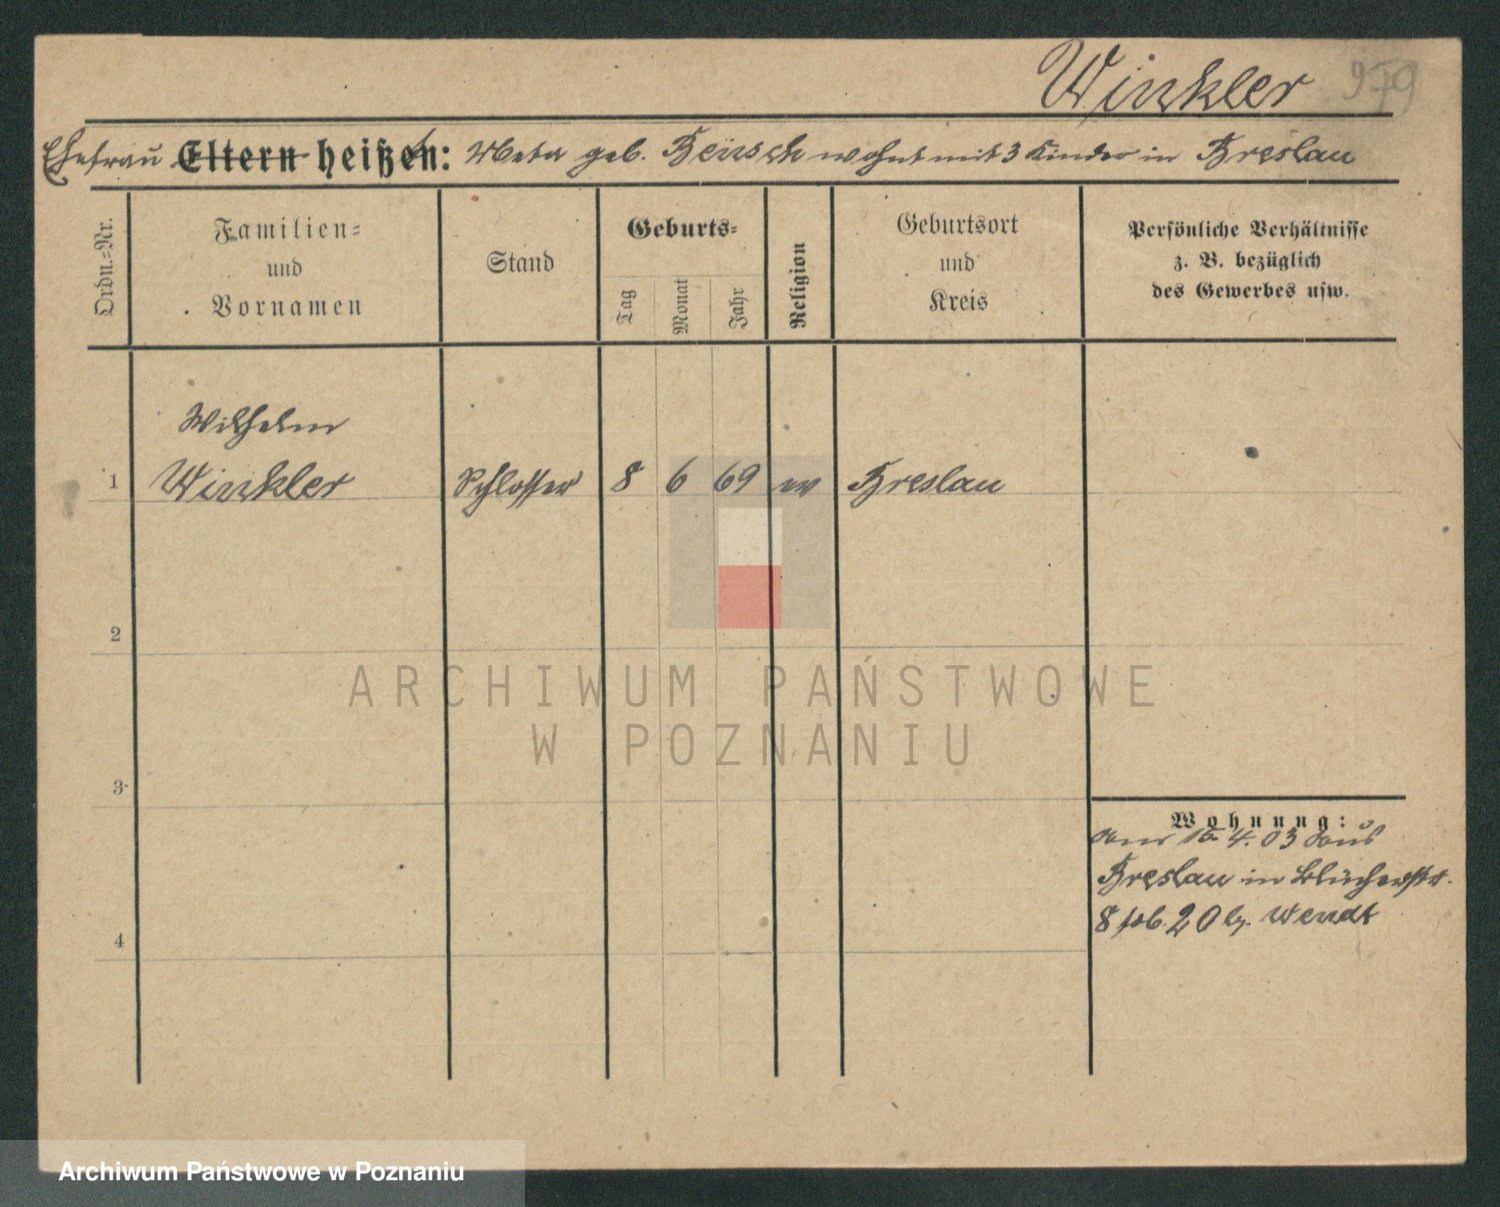 Winkler 979
Ehefrau Eltern heißt: Meta geb. Bensch wohnt mit 3 Kinder in Breslau
Ordn.-Nr.
Familien-
und
Vornamen
Stand
Geburts-
Tag
Monat
Jahr
Religion
Geburtsort
und
Kreis
Persönliche Verhältnisse
z. B. bezüglich
des Gewerbes usw.
Wilhelm
1 Winkler Schlosser 8 6 69 ev Breslau
2
ARCHIWUM PAŃSTWOWE
W POZNANIU
3
Wohnung:
am 15.4.03 aus
Breslau in Blücherstr.
8 20 b. Wendt
4
Archiwum Państwowe w Poznaniu